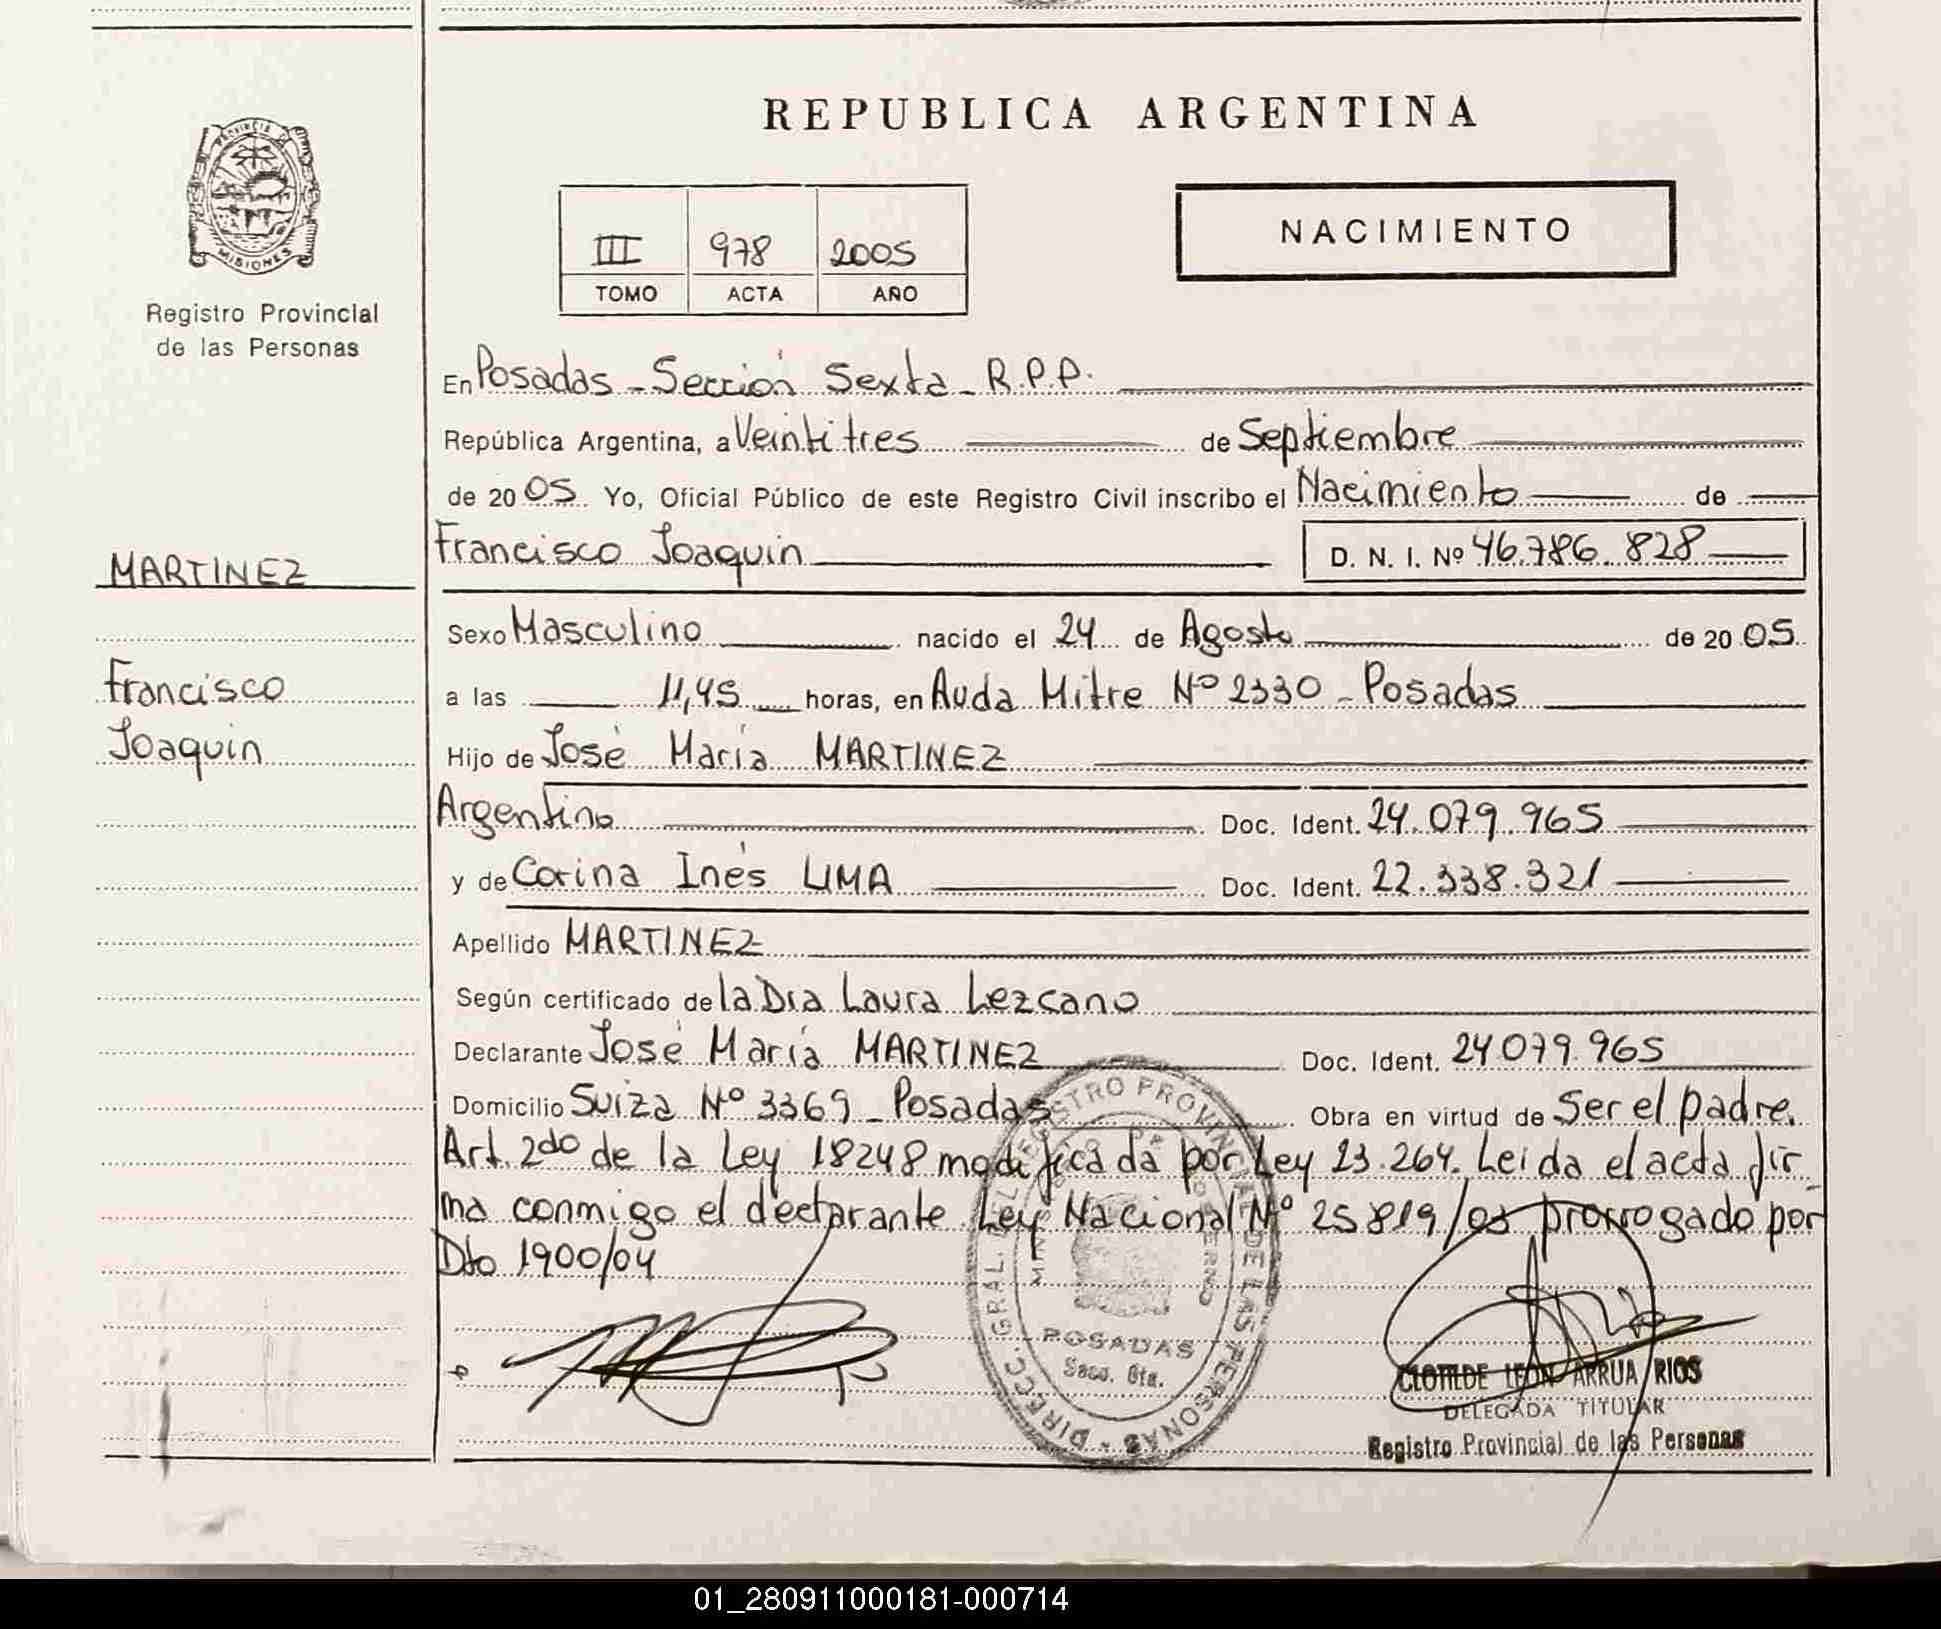 REPUBLICA ARGENTINA
PROVINCIA DE
MISIONES
Registro Provincial
de las Personas
III 978 2005
TOMO ACTA AÑO
NACIMIENTO
En Posadas - Sección Sexta - R.P.P.
República Argentina, a Veintitres de Septiembre
de 20 05. Yo, Oficial Público de este Registro Civil inscribo el Nacimiento de
Francisco Joaquín D. N. I. Nº 46.786.828
MARTINEZ
Francisco
Joaquín
Sexo Masculino nacido el 24 de Agosto de 20 05
a las 11,45 horas, en Avda Mitre Nº 2330 - Posadas
Hijo de José María MARTINEZ
Argentino Doc. Ident. 24.079.965
y de Corina Inés LIMA Doc. Ident. 22.338.321
Apellido MARTINEZ
Según certificado de la Dra Laura Lezcano
Declarante José María MARTINEZ Doc. Ident. 24079.965
Domicilio Suiza Nº 3369 - Posadas Obra en virtud de Ser el padre.
Art. 2do de la Ley 18248 modificada por Ley 23.264. Leida el acta fir
ma conmigo el declarante Ley Nacional Nº 25819/03 prorrogado por
Dto 1900/04
DIRECC. GRAL. DEL REGISTRO PROVINCIAL DE LAS PERSONAS
POSADAS
Secc. 6ta.
CLOTILDE LEON ARRUA RIOS
DELEGADA TITULAR
Registro Provincial de las Personas
01_280911000181-000714